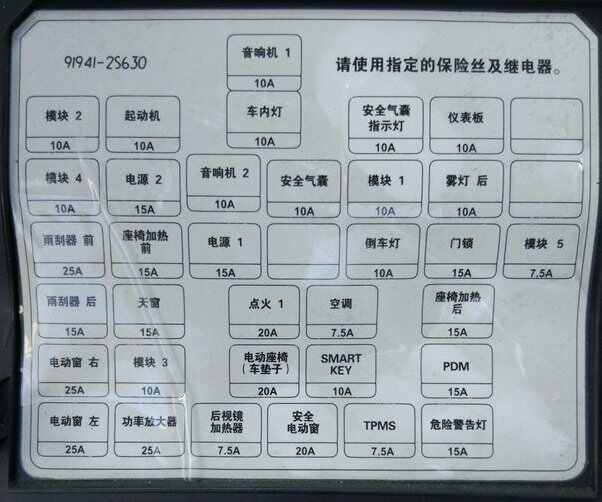 音响机 1
10A
91941-2S630
请使用指定的保险丝及继电器。
模块 2
10A
起动机
10A
车内灯
10A
安全气囊
指示灯
10A
仪表板
10A
模块 4
10A
电源 2
15A
音响机 2
10A
安全气囊
10A
模块 1
10A
雾灯 后
10A
雨刮器 前
25A
座椅加热
前
15A
电源 1
15A
倒车灯
10A
门锁
15A
模块 5
7.5A
雨刮器 后
15A
天窗
15A
点火 1
20A
空调
7.5A
座椅加热
后
15A
电动窗 右
25A
模块 3
10A
电动座椅
(车垫子)
20A
SMART
KEY
10A
PDM
15A
电动窗 左
25A
功率放大器
25A
后视镜
加热器
7.5A
安全
电动窗
20A
TPMS
7.5A
危险警告灯
15A